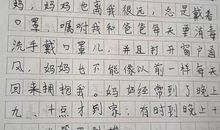 妈，妈妈也离我很远，总是戴着
口罩，嘱咐我和爸爸每天要消毒
洗手戴口罩儿，并且打开窗户通
风，妈妈也不能像以前一样每天
回来拥抱我。妈妈经常到了晚上
九、十点才到家，有时到晚上十